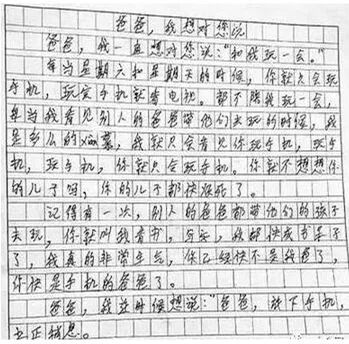 爸爸，我想对您说
爸爸，我一直想对您说：“和我玩一会。”
每当星期六和星期天的时候，你就只会玩
手机，玩完手机就看电视。都不陪我玩一会，
每当我看见别人的爸爸带他们去玩的时候，我
是多么的xian慕，我就只会看见你玩手机，玩手
机，玩手机，你就只会玩手机。你就不想想你
的儿子吗，你的儿子都快疯了。
记得有一次，别人的爸爸都带他们的孩子
去玩，你就叫我看书，写字，我都快成书呆子
了，我真的非常生气，你已经快不是我爸了，
你快是手机的爸爸了。
爸爸，我这时候想说：“爸爸，放下手机，